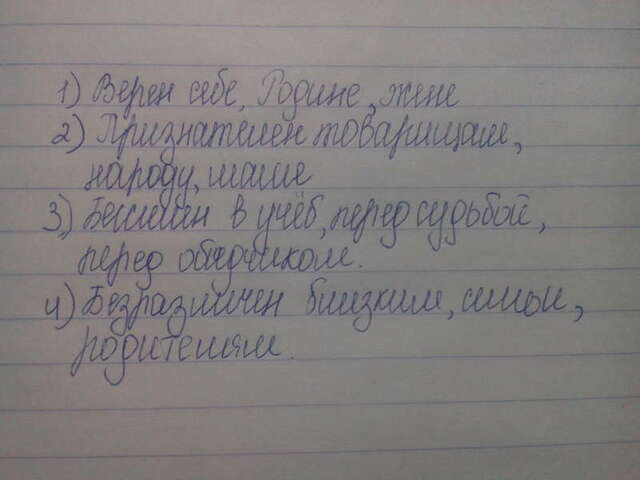 1) Верен себе, Родине, жене
2) Признателен товарищам,
народу, маме
3) Бессилен в учёб, перед судьбой,
перед обидчиком.
4) Безразличен близким, семьи,
родителям.